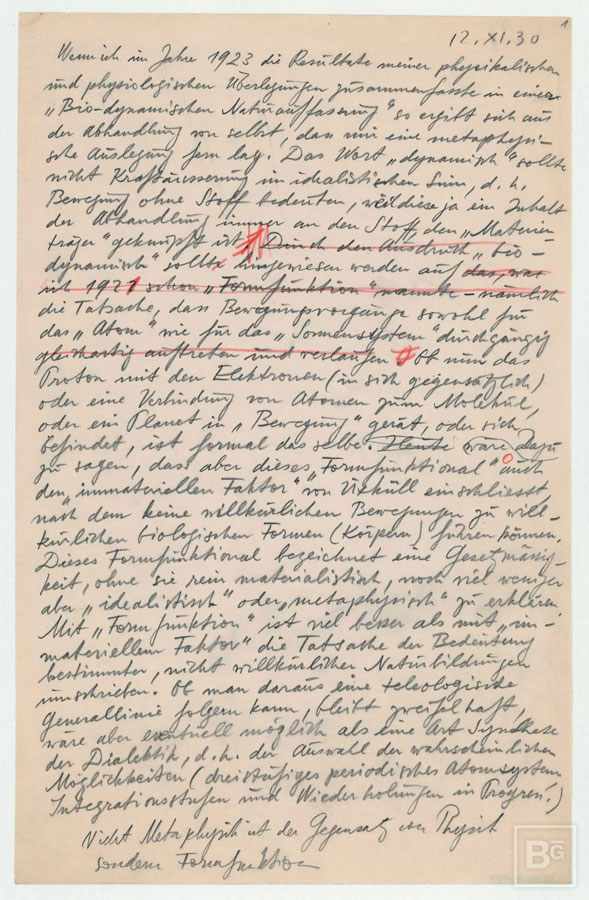 1
12.XI.30
Wenn ich im Jahre 1923 die Resultate meiner physikalischen
und physiologischen Überlegungen zusammenfasste in einer
„Bio-dynamischen Naturauffassung" so ergibt sich aus
der Abhandlung von selbst, dass mir eine metaphysi-
sche Auslegung fern lag. Das Wort „dynamisch" sollte
nicht Kraftäusserung im idealistischen Sinn, d. h.
Bewegung ohne Stoff bedeuten, weil diese ja ein Inhalt
der Abhandlung immer an den Stoff, den „Materien
träger" geknüpft ist. Durch den Ausdruck „bio-
dynamisch" sollte hingewiesen werden auf das, was
ich 1921 schon „Formfunktion" nannte – nämlich
die Tatsache, dass Bewegungsvorgänge sowohl für
das „Atom" wie für das „Sonnensystem" durchgängig
gleichartig auftreten und verlaufen. Ob nun das
Proton mit den Elektronen (in sich gegensätzlich)
oder eine Verbindung von Atomen zum Molekül,
oder ein Planet in „Bewegung" gerät, oder sich
befindet, ist formal das selbe. Heute wäre Dazu
zu sagen, dass aber dieses „Formfunktional" auch
den „immateriellen Faktor" von Uxküll einschliesst,
nach dem keine willkürlichen Bewegungen zu will-
kürlichen biologischen Formen (Körpern) führen können.
Dieses Formfunktional bezeichnet eine Gesetzmässig-
keit, ohne sie rein materialistisch, noch viel weniger
aber „idealistisch" oder „metaphysisch" zu erklären.
Mit „Formfunktion" ist viel besser als mit „im-
materiellem Faktor" die Tatsache der Bedeutung
bestimmter, nicht willkürlicher Naturbildungen
umschrieben. Ob man daraus eine teleologische
Generallinie folgern kann, bleibt zweifelhaft,
wäre aber eventuell möglich als eine Art Synthese
der Dialektik, d. h. der Auswahl der wahrscheinlichen
Möglichkeiten (dreistufiges periodisches Atomsystem
Integrationsstufen und Wiederholungen in Progress.)
Nicht Metaphysik ist der Gegensatz von Physik
sondern Formfunktion
BG